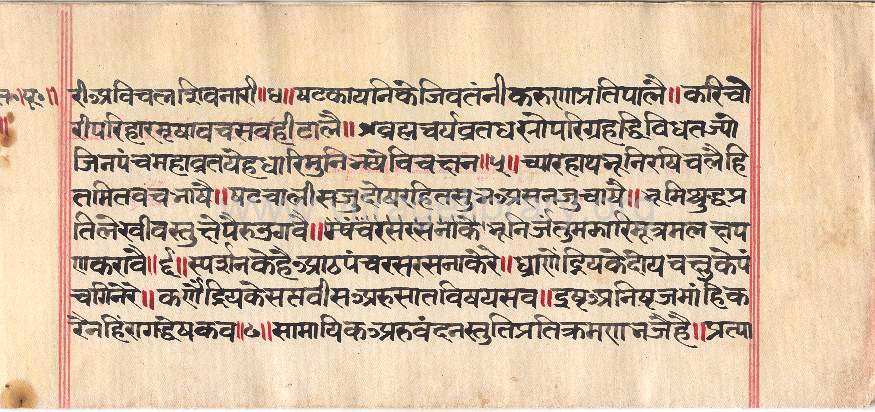 री॰प्रविचलशिवनारी॥४॥षटकायनिकेजिवतंनीकरुणाप्रतिपालै॥करिचो
रीपरिहारमृषावचसवहीटालै॥ब्रह्मचर्यव्रतधरनोपरिग्रहद्विविधतज्यो
जिनपंचमहाव्रतयेहधारिमुनि विचछन॥५॥च्यारहाथभूनिरषिचलैहि
तमितवचनाषै॥षटचालीसजुदोषरहितसु चाषै॥भूमिशुद्धप्र
तिलेखीवस्तु ॥ तुमझारिमूत्रमल
णकरावै॥६॥स्पर्शनकेहैआठपंचरसरसनाकेरे॥घ्राणेंद्रियकेदोयचक्षुकेपं
चगिनेरे॥कर्णेंद्रियकेसतवीसअरुसातविषयसव॥इष्टअनिष्टजमांहिक
रैनहिंरागद्वेषकव॥७॥सामायिकअरुवंदनस्तुतिप्रतिक्रमणनजैहै॥प्रत्या